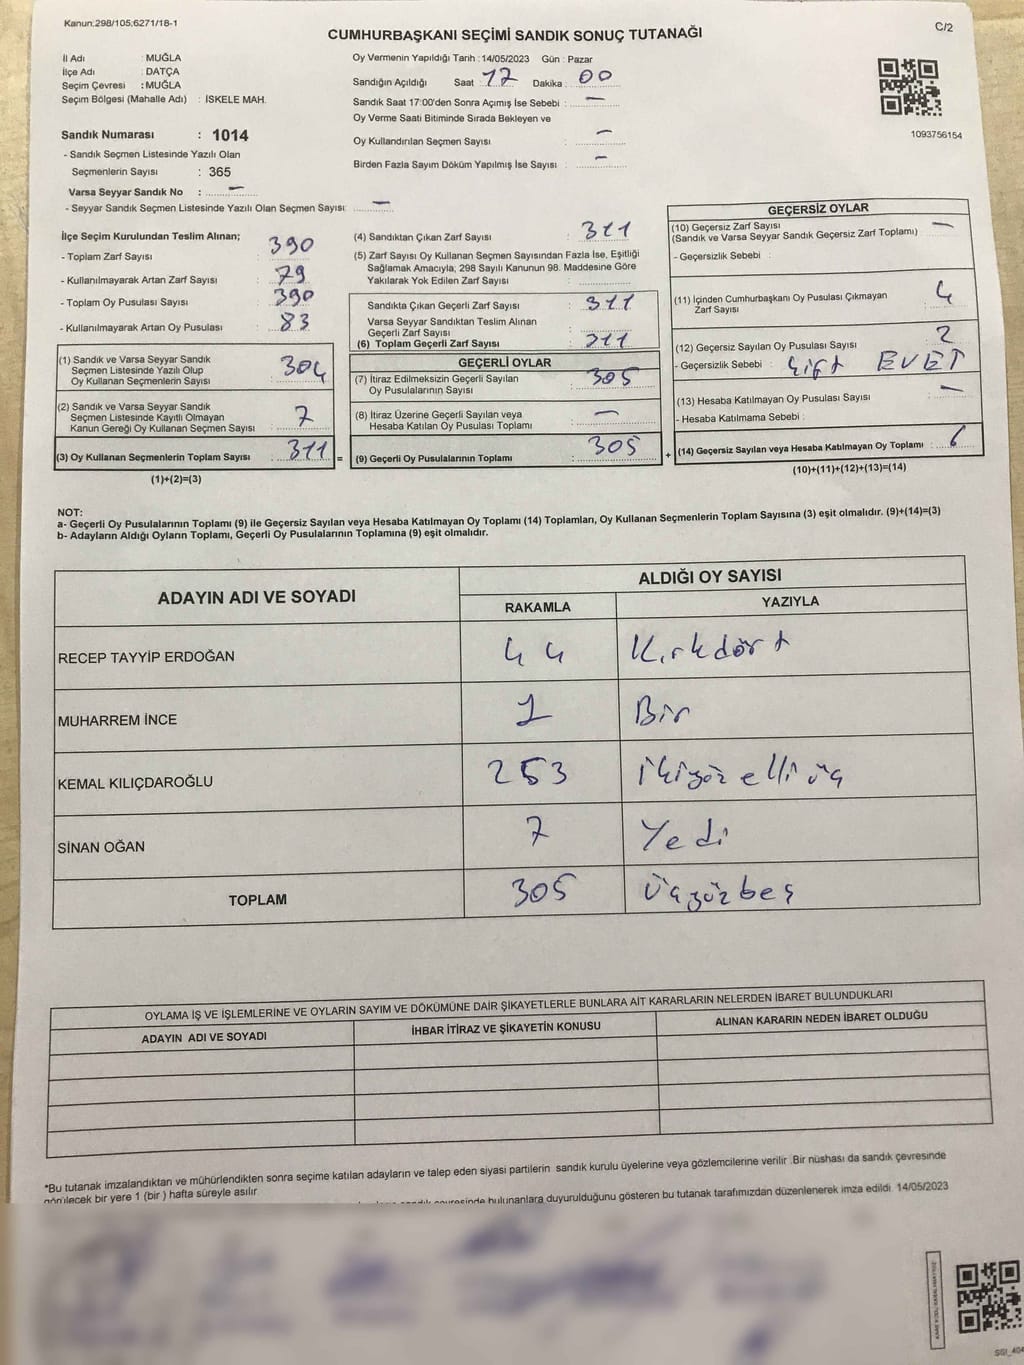 Kanun:298/105;6271/18-1
C/2
CUMHURBAŞKANI SEÇİMİ SANDIK SONUÇ TUTANAĞI
İl Adı : MUĞLA
İlçe Adı : DATÇA
Seçim Çevresi : MUĞLA
Seçim Bölgesi (Mahalle Adı) : İSKELE MAH.
Oy Vermenin Yapıldığı Tarih : 14/05/2023 Gün : Pazar
Sandığın Açıldığı Saat : 17 Dakika : 00
Sandık Saat 17:00'den Sonra Açımış İse Sebebi : —
Oy Verme Saati Bitiminde Sırada Bekleyen ve
Oy Kullandırılan Seçmen Sayısı : —
Birden Fazla Sayım Döküm Yapılmış İse Sayısı : —
1093756154
Sandık Numarası : 1014
- Sandık Seçmen Listesinde Yazılı Olan
Seçmenlerin Sayısı : 365
Varsa Seyyar Sandık No : —
- Seyyar Sandık Seçmen Listesinde Yazılı Olan Seçmen Sayısı: —
İlçe Seçim Kurulundan Teslim Alınan;
- Toplam Zarf Sayısı : 390
- Kullanılmayarak Artan Zarf Sayısı : 79
- Toplam Oy Pusulası Sayısı : 390
- Kullanılmayarak Artan Oy Pusulası : 83
(1) Sandık ve Varsa Seyyar Sandık
Seçmen Listesinde Yazılı Olup
Oy Kullanan Seçmenlerin Sayısı : 304
(2) Sandık ve Varsa Seyyar Sandık
Seçmen Listesinde Kayıtlı Olmayan
Kanun Gereği Oy Kullanan Seçmen Sayısı : 7
(3) Oy Kullanan Seçmenlerin Toplam Sayısı : 311 =
(1)+(2)=(3)
(4) Sandıktan Çıkan Zarf Sayısı : 311
(5) Zarf Sayısı Oy Kullanan Seçmen Sayısından Fazla İse, Eşitliği
Sağlamak Amacıyla; 298 Sayılı Kanunun 98. Maddesine Göre
Yakılarak Yok Edilen Zarf Sayısı :
Sandıkta Çıkan Geçerli Zarf Sayısı : 311
Varsa Seyyar Sandıktan Teslim Alınan
Geçerli Zarf Sayısı :
(6) Toplam Geçerli Zarf Sayısı : 311
GEÇERLİ OYLAR
(7) İtiraz Edilmeksizin Geçerli Sayılan
Oy Pusulalarının Sayısı : 305
(8) İtiraz Üzerine Geçerli Sayılan veya
Hesaba Katılan Oy Pusulası Toplamı : —
(9) Geçerli Oy Pusulalarının Toplamı : 305 +
GEÇERSİZ OYLAR
(10) Geçersiz Zarf Sayısı —
(Sandık ve Varsa Seyyar Sandık Geçersiz Zarf Toplamı) :
- Geçersizlik Sebebi :
(11) İçinden Cumhurbaşkanı Oy Pusulası Çıkmayan : 4
Zarf Sayısı
(12) Geçersiz Sayılan Oy Pusulası Sayısı : 2
- Geçersizlik Sebebi : Çift EVET
(13) Hesaba Katılmayan Oy Pusulası Sayısı : —
- Hesaba Katılmama Sebebi :
(14) Geçersiz Sayılan veya Hesaba Katılmayan Oy Toplamı : 6
(10)+(11)+(12)+(13)=(14)
NOT:
a- Geçerli Oy Pusulalarının Toplamı (9) ile Geçersiz Sayılan veya Hesaba Katılmayan Oy Toplamı (14) Toplamları, Oy Kullanan Seçmenlerin Toplam Sayısına (3) eşit olmalıdır. (9)+(14)=(3)
b- Adayların Aldığı Oyların Toplamı, Geçerli Oy Pusulalarının Toplamına (9) eşit olmalıdır.
ADAYIN ADI VE SOYADI
ALDIĞI OY SAYISI
RAKAMLA YAZIYLA
RECEP TAYYİP ERDOĞAN 44 Kırkdört
MUHARREM İNCE 1 Bir
KEMAL KILIÇDAROĞLU 253 ikiyüz elli üç
SİNAN OĞAN 7 Yedi
TOPLAM 305 Üçyüzbeş
OYLAMA İŞ VE İŞLEMLERİNE VE OYLARIN SAYIM VE DÖKÜMÜNE DAİR ŞİKAYETLERLE BUNLARA AİT KARARLARIN NELERDEN İBARET BULUNDUKLARI
ADAYIN ADI VE SOYADI İHBAR İTİRAZ VE ŞİKAYETİN KONUSU ALINAN KARARIN NEDEN İBARET OLDUĞU
*Bu tutanak imzalandıktan ve mühürlendikten sonra seçime katılan adayların ve talep eden siyasi partilerin sandık kurulu üyelerine veya gözlemcilerine verilir .Bir nüshası da sandık çevresinde
görülecek bir yere 1 (bir ) hafta süreyle asılır
sandık çevresinde bulunanlara duyurulduğunu gösteren bu tutanak tarafımızdan düzenlenerek imza edildi. 14/05/2023